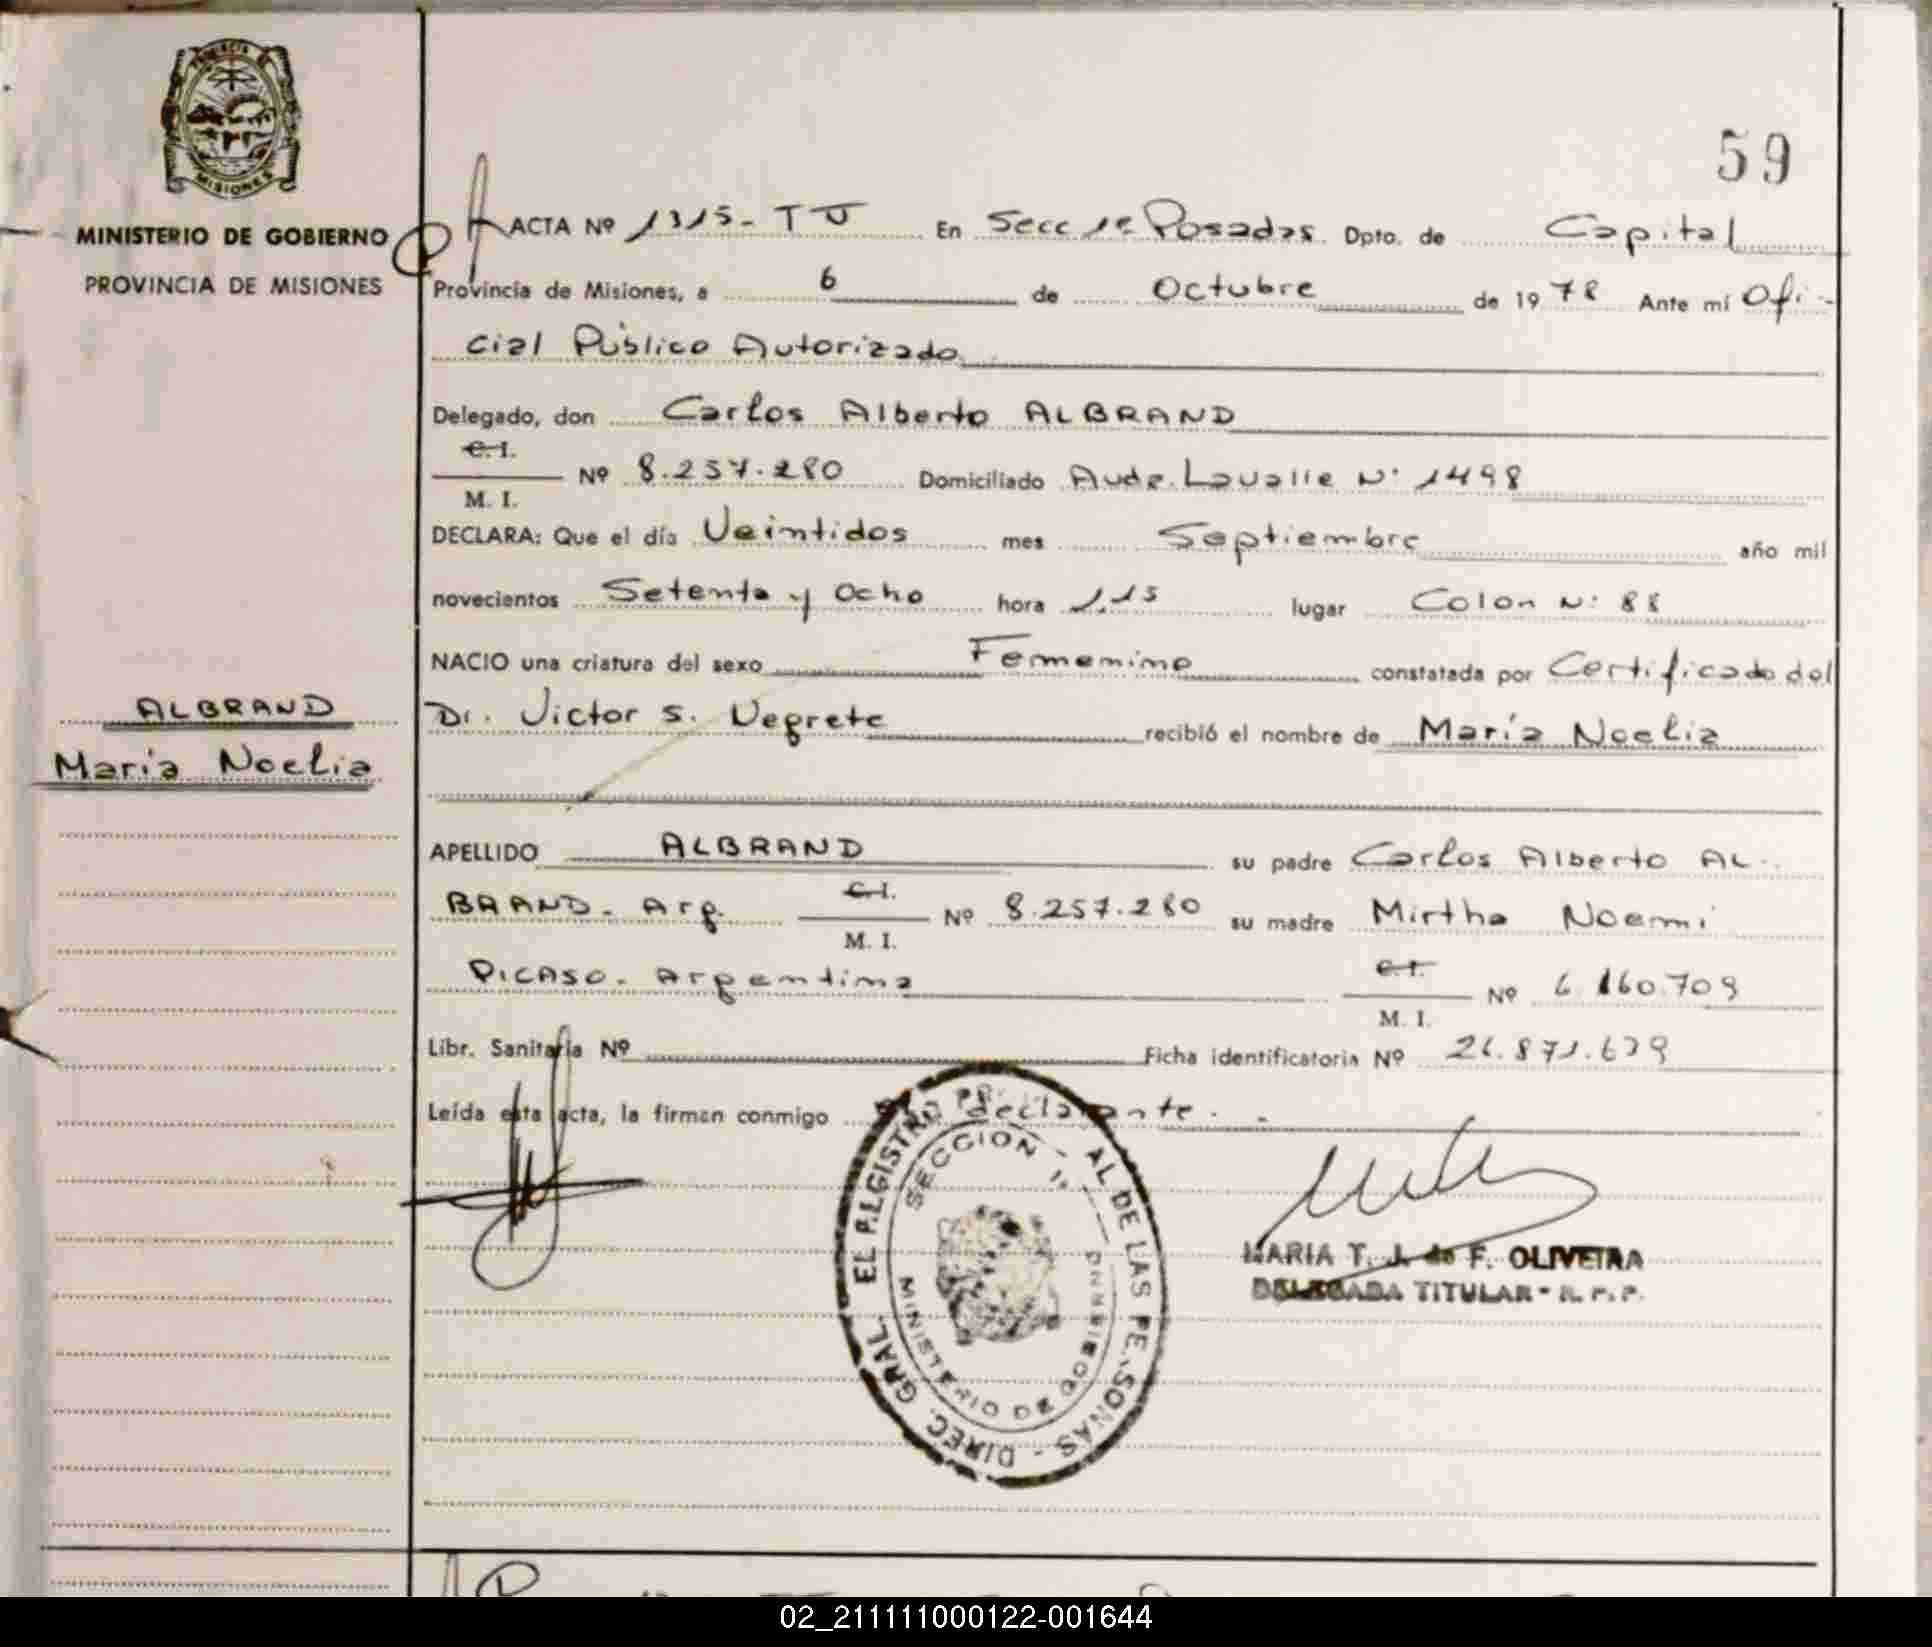 59
MINISTERIO DE GOBIERNO
PROVINCIA DE MISIONES
ACTA Nº 1315- TJ En Secc 1ª Posadas Dpto. de Capital
Provincia de Misiones, a 6 de Octubre de 1978 Ante mí Ofi-
cial Público Autorizado
Delegado, don Carlos Alberto ALBRAND
C. I.
M. I. Nº 8.257.280 Domiciliado Avda. Lavalle Nº 1498
DECLARA: Que el día Veintidos mes Septiembre año mil
novecientos Setenta y Ocho hora 1,15 lugar Colon Nº 88
NACIO una criatura del sexo Femenino constatada por Certificado del
Dr. Victor S. Negrete recibió el nombre de María Noelia
ALBRAND
María Noelia
APELLIDO ALBRAND su padre Carlos Alberto AL-
BRAND- Arg. C. I.
M. I. Nº 8.257.280 su madre Mirtha Noemi
PICASO- Argentina C. I.
M. I. Nº 6.160.709
Libr. Sanitaria Nº Ficha identificatoria Nº 26.871.679
Leída esta acta, la firman conmigo declarante.
SECCION 1ª
MINISTERIO DE GOBIERNO
MARIA T. J. de F. OLIVEIRA
DELEGADA TITULAR - R. P. P.
02_211111000122-001644